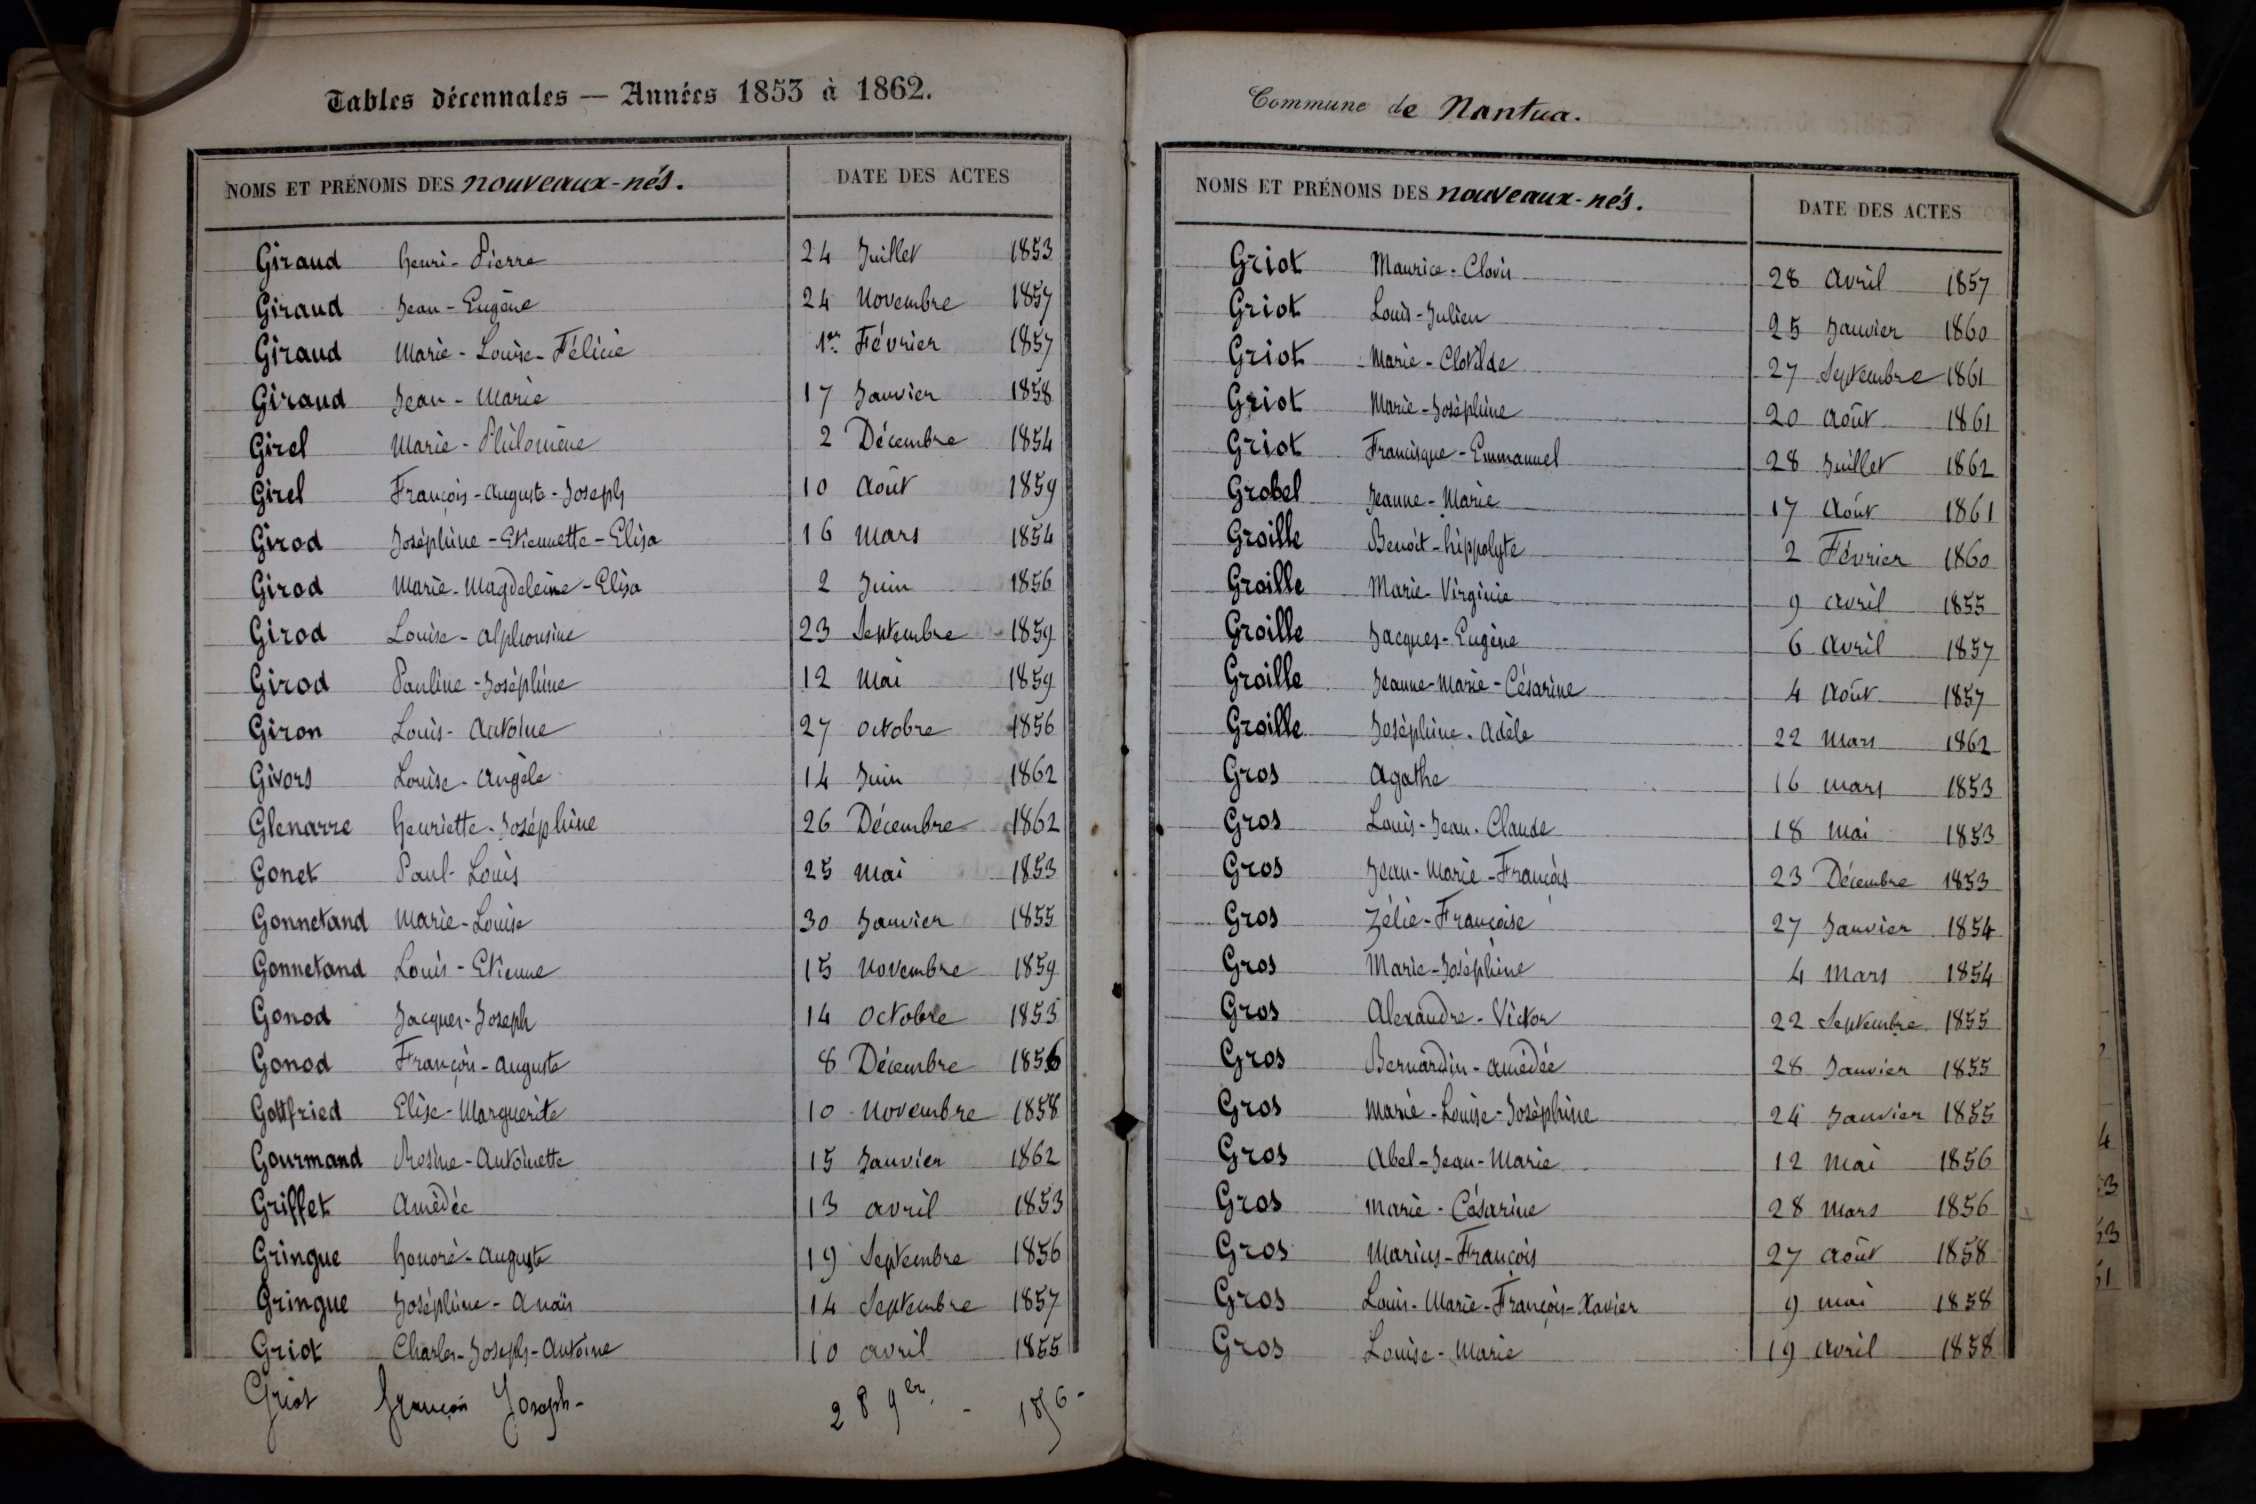 Tables décennales — Années 1853 à 1862.
NOMS ET PRÉNOMS DES nouveaux-nés. DATE DES ACTES
Giraud henri-Pierre 24 Juillet 1853
Giraud Jean-Eugène 24 Novembre 1857
Giraud Marie-Louise-Félicie 1er Février 1857
Giraud Jean-Marie 17 Janvier 1858
Girel Marie-Philomène 2 Décembre 1854
Girel François-Auguste-Joseph 10 Août 1859
Girod Joséphine-Etiennette-Elisa 16 Mars 1854
Girod Marie-Magdeleine-Elisa 2 Juin 1856
Girod Louise-Alphonsine 23 Septembre 1859
Girod Pauline-Joséphine 12 Mai 1859
Giron Louis-Antoine 27 Octobre 1856
Givors Louise-Angèle 14 Juin 1862
Glenarre henriette-Joséphine 26 Décembre 1862
Gonet Paul-Louis 25 Mai 1853
Gonnetand Marie-Louise 30 Janvier 1855
Gonnetand Louis-Etienne 15 Novembre 1859
Gonod Jacques-Joseph 14 Octobre 1853
Gonod François-Auguste 8 Décembre 1856
Gottfried Elise-Marguerite 10 Novembre 1858
Gourmand Rosine-Antoinette 15 Janvier 1862
Griffet Amédée 13 Avril 1853
Gringue honoré-Auguste 19 Septembre 1856
Gringue Joséphine-Anaïs 14 Septembre 1857
Griot Charles-Joseph-Antoine 10 Avril 1855
Griot françois Joseph- 28 9er. - 1856-
Commune de Nantua.
NOMS ET PRÉNOMS DES nouveaux-nés. DATE DES ACTES
Griot Maurice-Clovis 28 Avril 1857
Griot Louis-Julien 25 Janvier 1860
Griot Marie-Clotilde 27 Septembre 1861
Griot Marie-Joséphine 20 Août 1861
Griot Francisque-Emmanuel 28 Juillet 1862
Grobel Jeanne-Marie 17 Août 1861
Groille Benoît-hippolyte 2 Février 1860
Groille Marie-Virginie 9 Avril 1855
Groille Jacques-Eugène 6 Avril 1857
Groille Jeanne-Marie-Césarine 4 Août 1857
Groille Joséphine-Adèle 22 Mars 1862
Gros Agathe 16 Mars 1853
Gros Louis-Jean-Claude 18 Mai 1853
Gros Jean-Marie-François 23 Décembre 1853
Gros Zélie-Françoise 27 Janvier 1854
Gros Marie-Joséphine 4 Mars 1854
Gros Alexandre-Victor 22 Septembre 1855
Gros Bernardin-Amédée 28 Janvier 1855
Gros Marie-Louise-Joséphine 24 Janvier 1855
Gros Abel-Jean-Marie 12 Mai 1856
Gros Marie-Césarine 28 Mars 1856
Gros Marius-François 27 Août 1858
Gros Louis-Marie-François-Xavier 9 Mai 1858
Gros Louise-Marie 19 Avril 1858